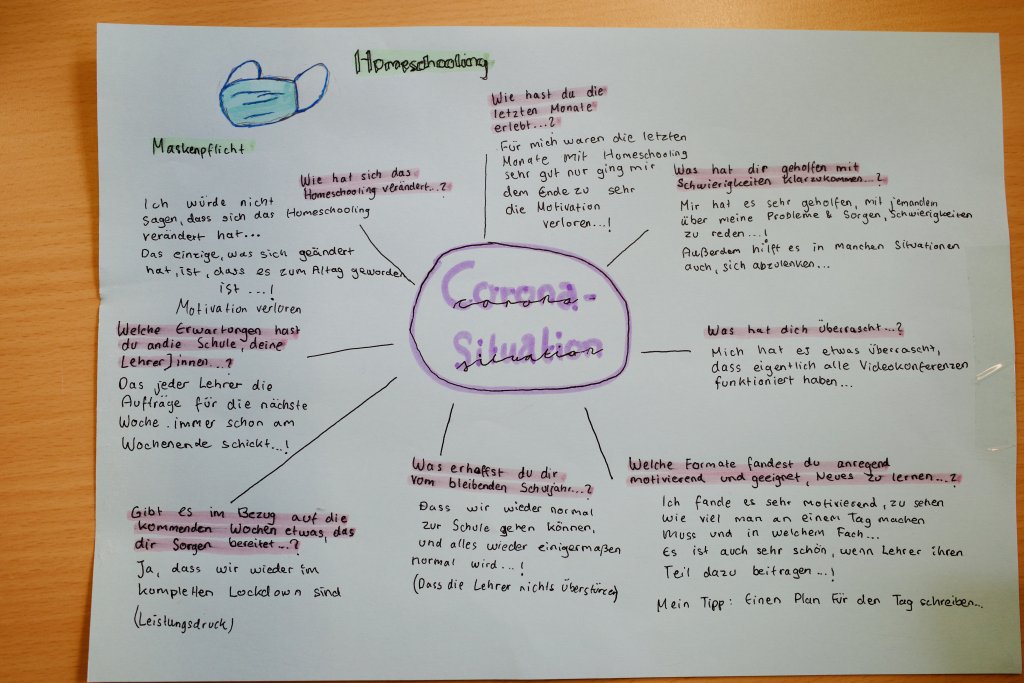 Homeschooling
Maskenpflicht
Wie hast du die
letzten Monate
erlebt...?
Für mich waren die letzten
Monate mit Homeschooling
sehr gut nur ging mir
dem Ende zu sehr
die Motivation
verloren...!
Was hat dir geholfen mit
Schwierigkeiten klarzukommen...?
Mir hat es sehr geholfen, mit jemandem
über meine Probleme & Sorgen, Schwierigkeiten
zu reden...!
Außerdem hilft es in manchen Situationen
auch, sich abzulenken...
Wie hat sich das
Homeschooling verändert...?
Ich würde nicht
sagen, dass sich das Homeschooling
verändert hat...
Das einzige, was sich geändert
hat, ist, dass es zum Altag geworden
ist ...!
Motivation verloren
Corona-
Situation
corona-
situation
Was hat dich überrascht...?
Mich hat es etwas überrascht,
dass eigentlich alle Videokonferenzen
funktioniert haben...
Welche Erwartungen hast
du an die Schule, deine
Lehrer]innen...?
Das jeder Lehrer die
Aufträge für die nächste
Woche immer schon am
Wochenende schickt...!
Gibt es im Bezug auf die
kommenden Wochen etwas, das
dir Sorgen bereitet...?
Ja, dass wir wieder im
kompletten Lockdown sind
(Leistungsdruck)
Was erhoffst du dir
vom bleibenden Schuljahr...?
Dass wir wieder normal
zur Schule gehen können,
und alles wieder einigermaßen
normal wird...!
(Dass die Lehrer nichts überstürzen)
Welche Formate fandest du anregend
motivierend und geeignet, Neues zu lernen...?
Ich fande es sehr motivierend, zu sehen
wie viel man an einem Tag machen
muss und in welchem Fach...
Es ist auch sehr schön, wenn Lehrer ihren
Teil dazu beitragen...!
Mein Tipp: Einen Plan für den Tag schreiben...